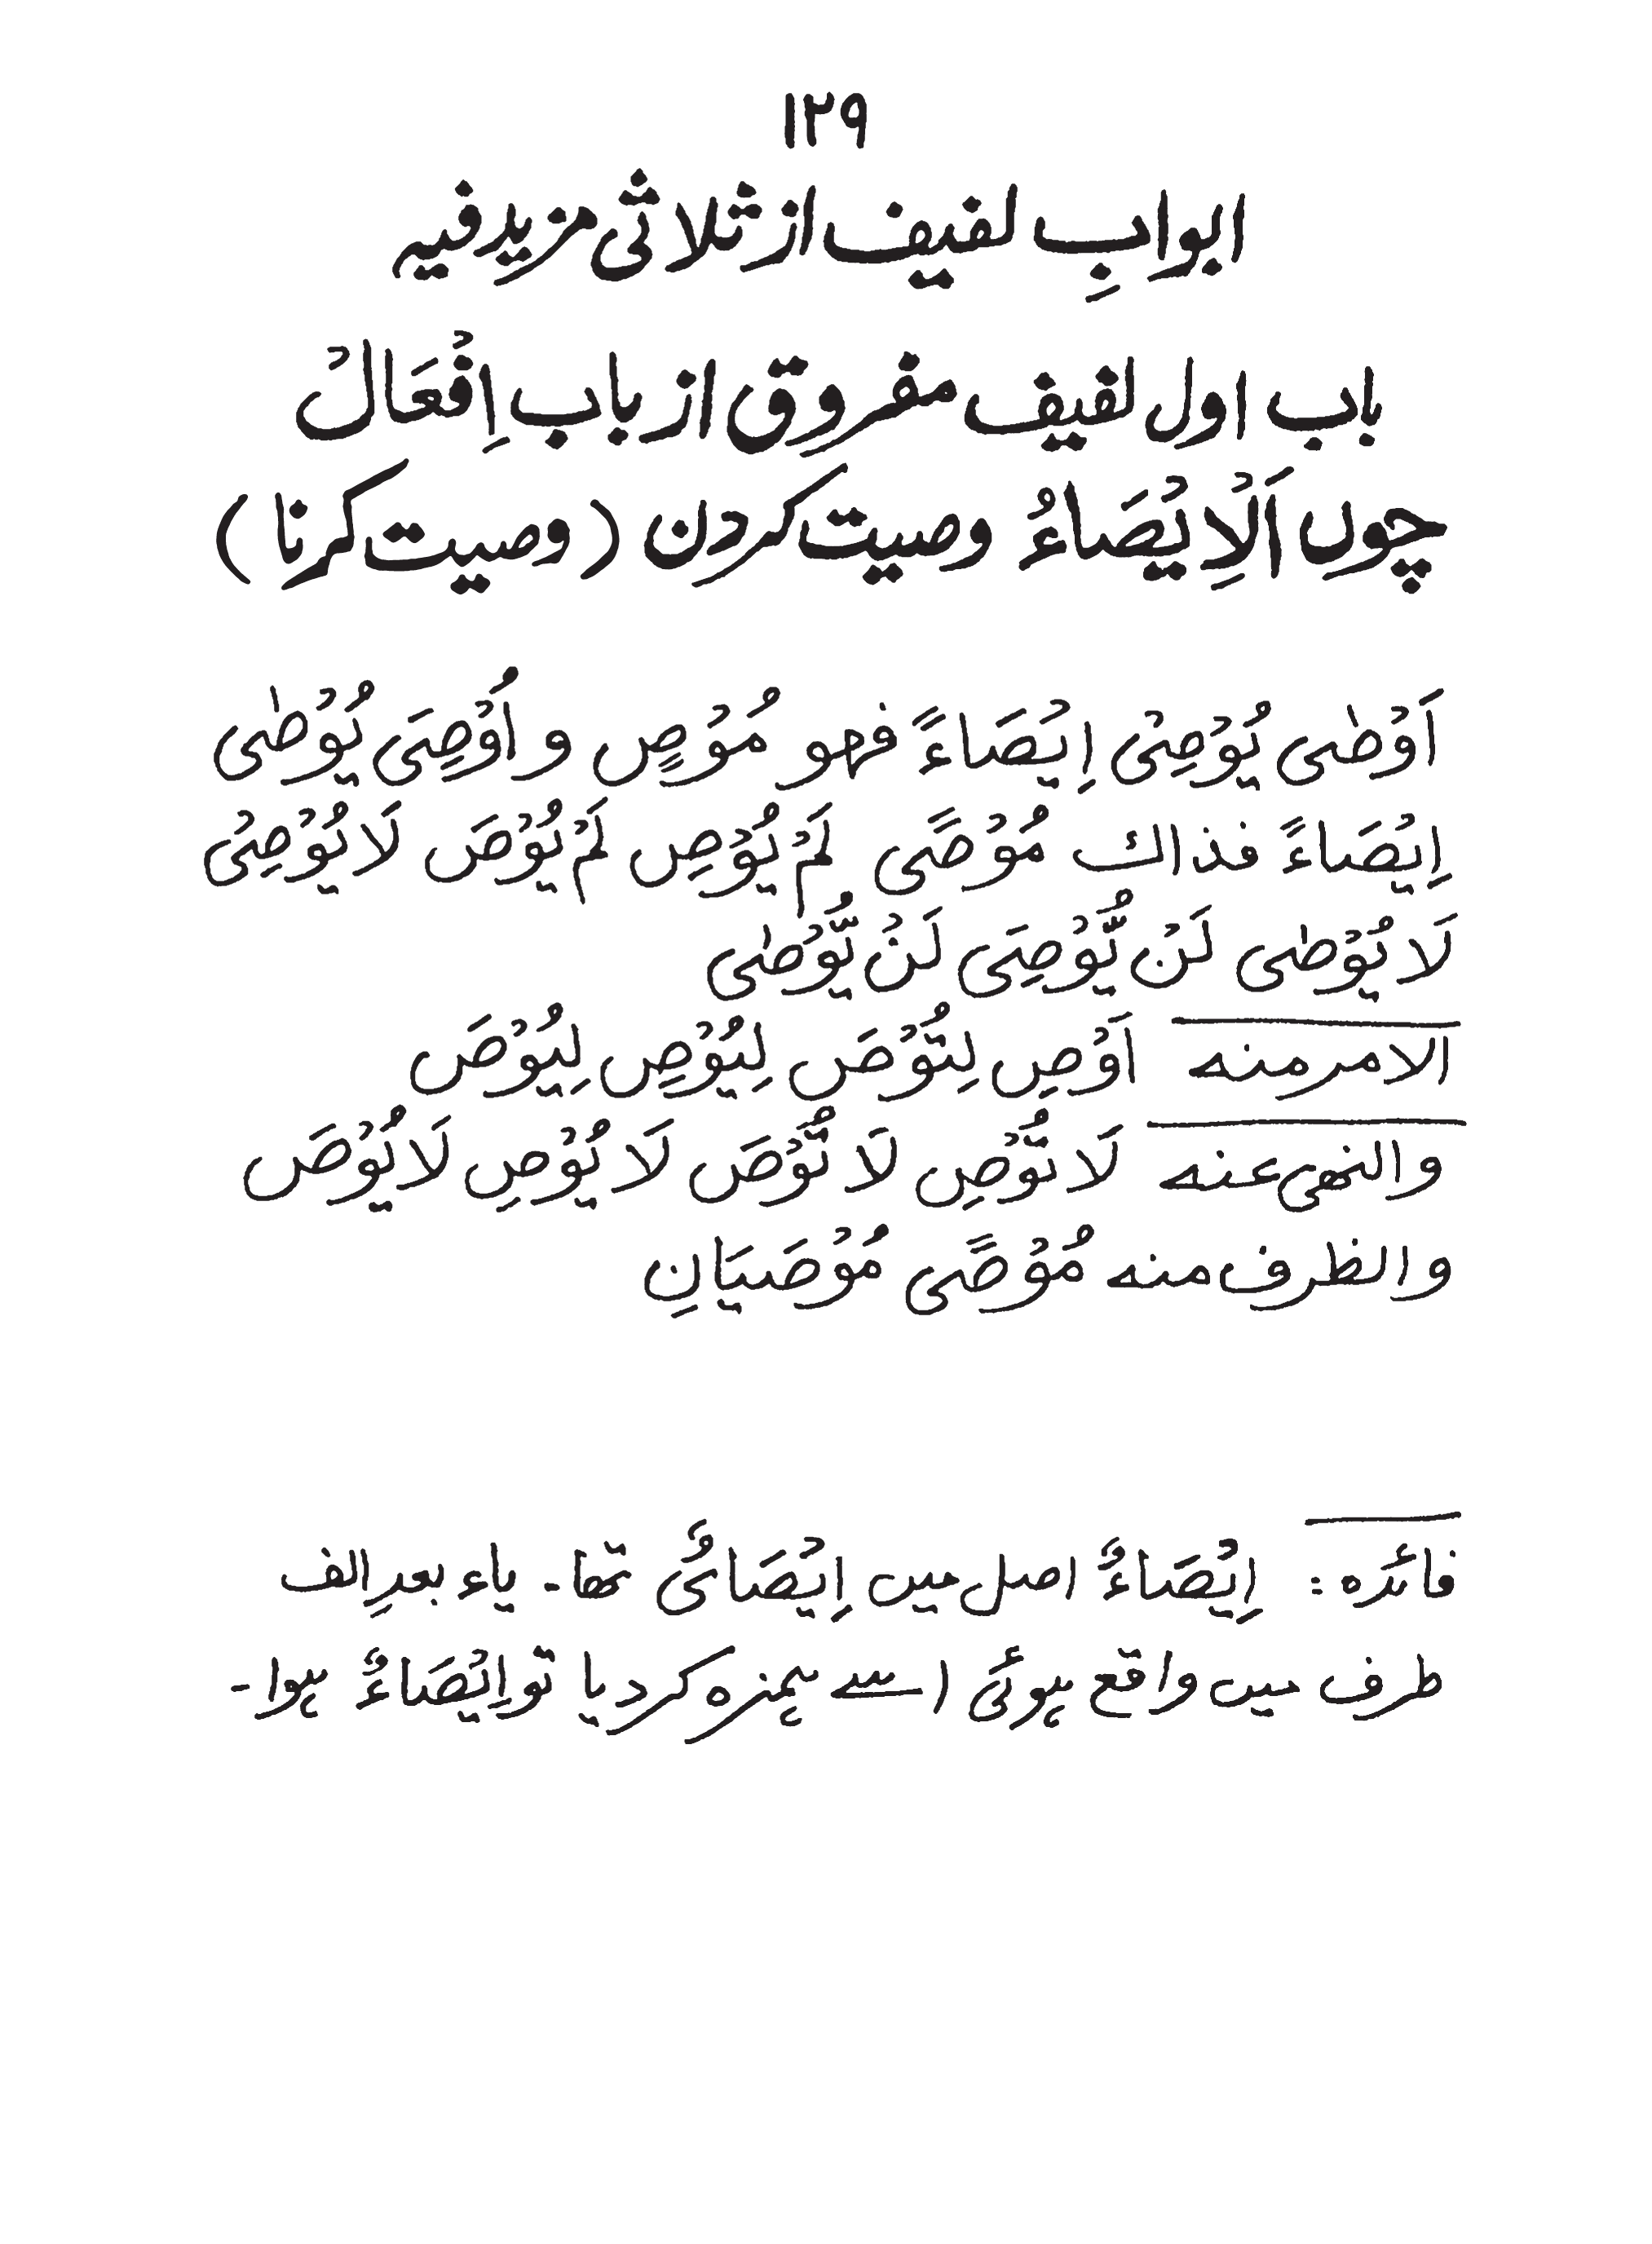 ۱۲۹
ابوابِ لفیف از ثلاثی مزید فیہ
باب اول لفیف مفروق از باب اِفْعَالْ
چوں اَلْاِیْصَاءُ وصیت کردن (وصیت کرنا)
اَوْصٰی یُوْصِیْ اِیْصَاءً فهو مُوْصٍ و اُوْصِیَ یُوْصٰی
اِیْصَاءً فذاك مُوْصًی لَمْ یُوْصِ لَمْ یُوْصَ لَا یُوْصِیْ
لَا یُوْصٰی لَنْ یُّوْصِیَ لَنْ یُّوْصٰی
الامر منه اَوْصِ لِتُوْصَ لِیُوْصِ لِیُوْصَ
والنهی عنه لَا تُوْصِ لَا تُوْصَ لَا یُوْصِ لَا یُوْصَ
والظرف منه مُوْصًی مُوْصَیَانِ
فائدہ: اِیْصَاءٌ اصل میں اِیْصَائٌ تھا۔ یاء بعدِ الف
طرف میں واقع ہوئی اسے ہمزہ کر دیا تو اِیْصَاءٌ ہوا۔